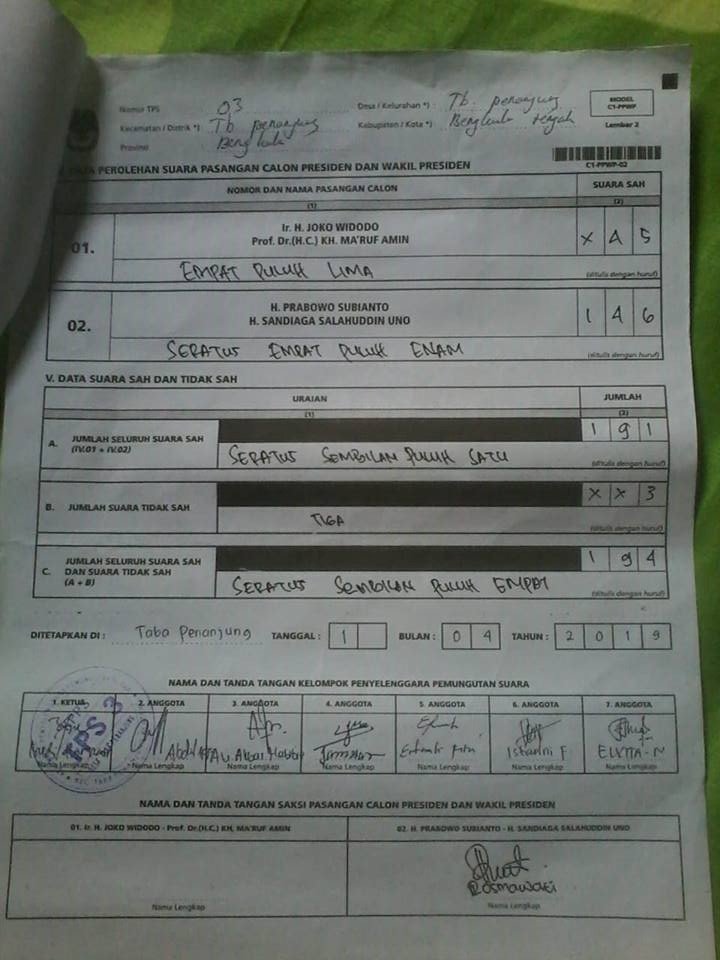 Nomor TPS 03 Desa / Kelurahan *) : Tb. Penanjung
Kecamatan / Distrik *) Tb Penanjung Kabupaten / Kota *) Bengkulu Tengah
Provinsi Bengkulu
MODEL
C1-PPWP
Lembar 2
C1-PPWP-02
DATA PEROLEHAN SUARA PASANGAN CALON PRESIDEN DAN WAKIL PRESIDEN
NOMOR DAN NAMA PASANGAN CALON SUARA SAH
(1) (2)
01. Ir. H. JOKO WIDODO
Prof. Dr.(H.C.) KH. MA'RUF AMIN X 4 5
EMPAT PULUH LIMA (ditulis dengan huruf)
02. H. PRABOWO SUBIANTO
H. SANDIAGA SALAHUDDIN UNO 1 4 6
SERATUS EMPAT PULUH ENAM (ditulis dengan huruf)
V. DATA SUARA SAH DAN TIDAK SAH
URAIAN JUMLAH
(1) (2)
A. JUMLAH SELURUH SUARA SAH
(IV.01 + IV.02) 1 9 1
SERATUS SEMBILAN PULUH SATU (ditulis dengan huruf)
B. JUMLAH SUARA TIDAK SAH X X 3
TIGA (ditulis dengan huruf)
C. JUMLAH SELURUH SUARA SAH
DAN SUARA TIDAK SAH
(A + B) 1 9 4
SERATUS SEMBILAN PULUH EMPAT (ditulis dengan huruf)
DITETAPKAN DI : Taba Penanjung TANGGAL : 1 BULAN : 0 4 TAHUN : 2 0 1 9
NAMA DAN TANDA TANGAN KELOMPOK PENYELENGGARA PEMUNGUTAN SUARA
1. KETUA 2. ANGGOTA 3. ANGGOTA 4. ANGGOTA 5. ANGGOTA 6. ANGGOTA 7. ANGGOTA
TPS 3
Nama Lengkap Nama Lengkap Nama Lengkap Nama Lengkap Nama Lengkap Nama Lengkap Nama Lengkap
NAMA DAN TANDA TANGAN SAKSI PASANGAN CALON PRESIDEN DAN WAKIL PRESIDEN
01. Ir. H. JOKO WIDODO - Prof. Dr.(H.C.) KH. MA'RUF AMIN 02. H. PRABOWO SUBIANTO - H. SANDIAGA SALAHUDDIN UNO
Nama Lengkap Nama Lengkap